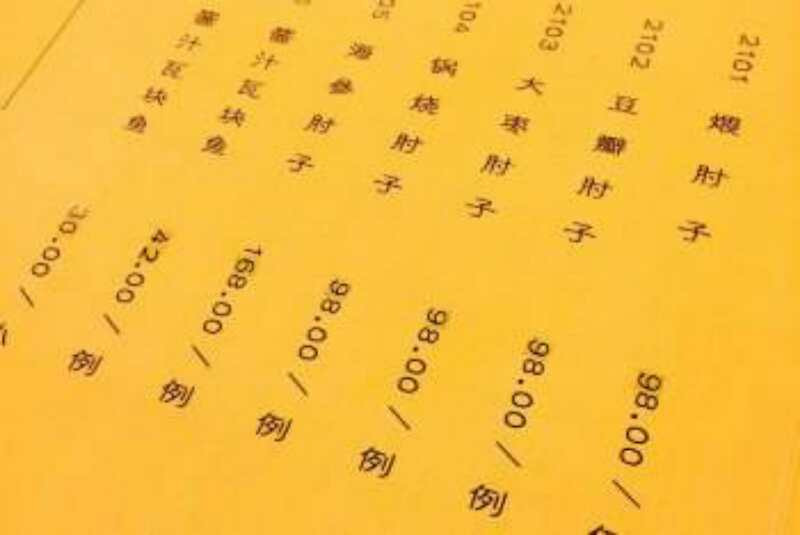 2101 煨肘子 98.00/
2102 豆瓣肘子 98.00/例
2103 大枣肘子 98.00/例
104 锅烧肘子 98.00/例
05 海参肘子 168.00/例
酱汁瓦块鱼 42.00/例
酱汁瓦块鱼 30.00/